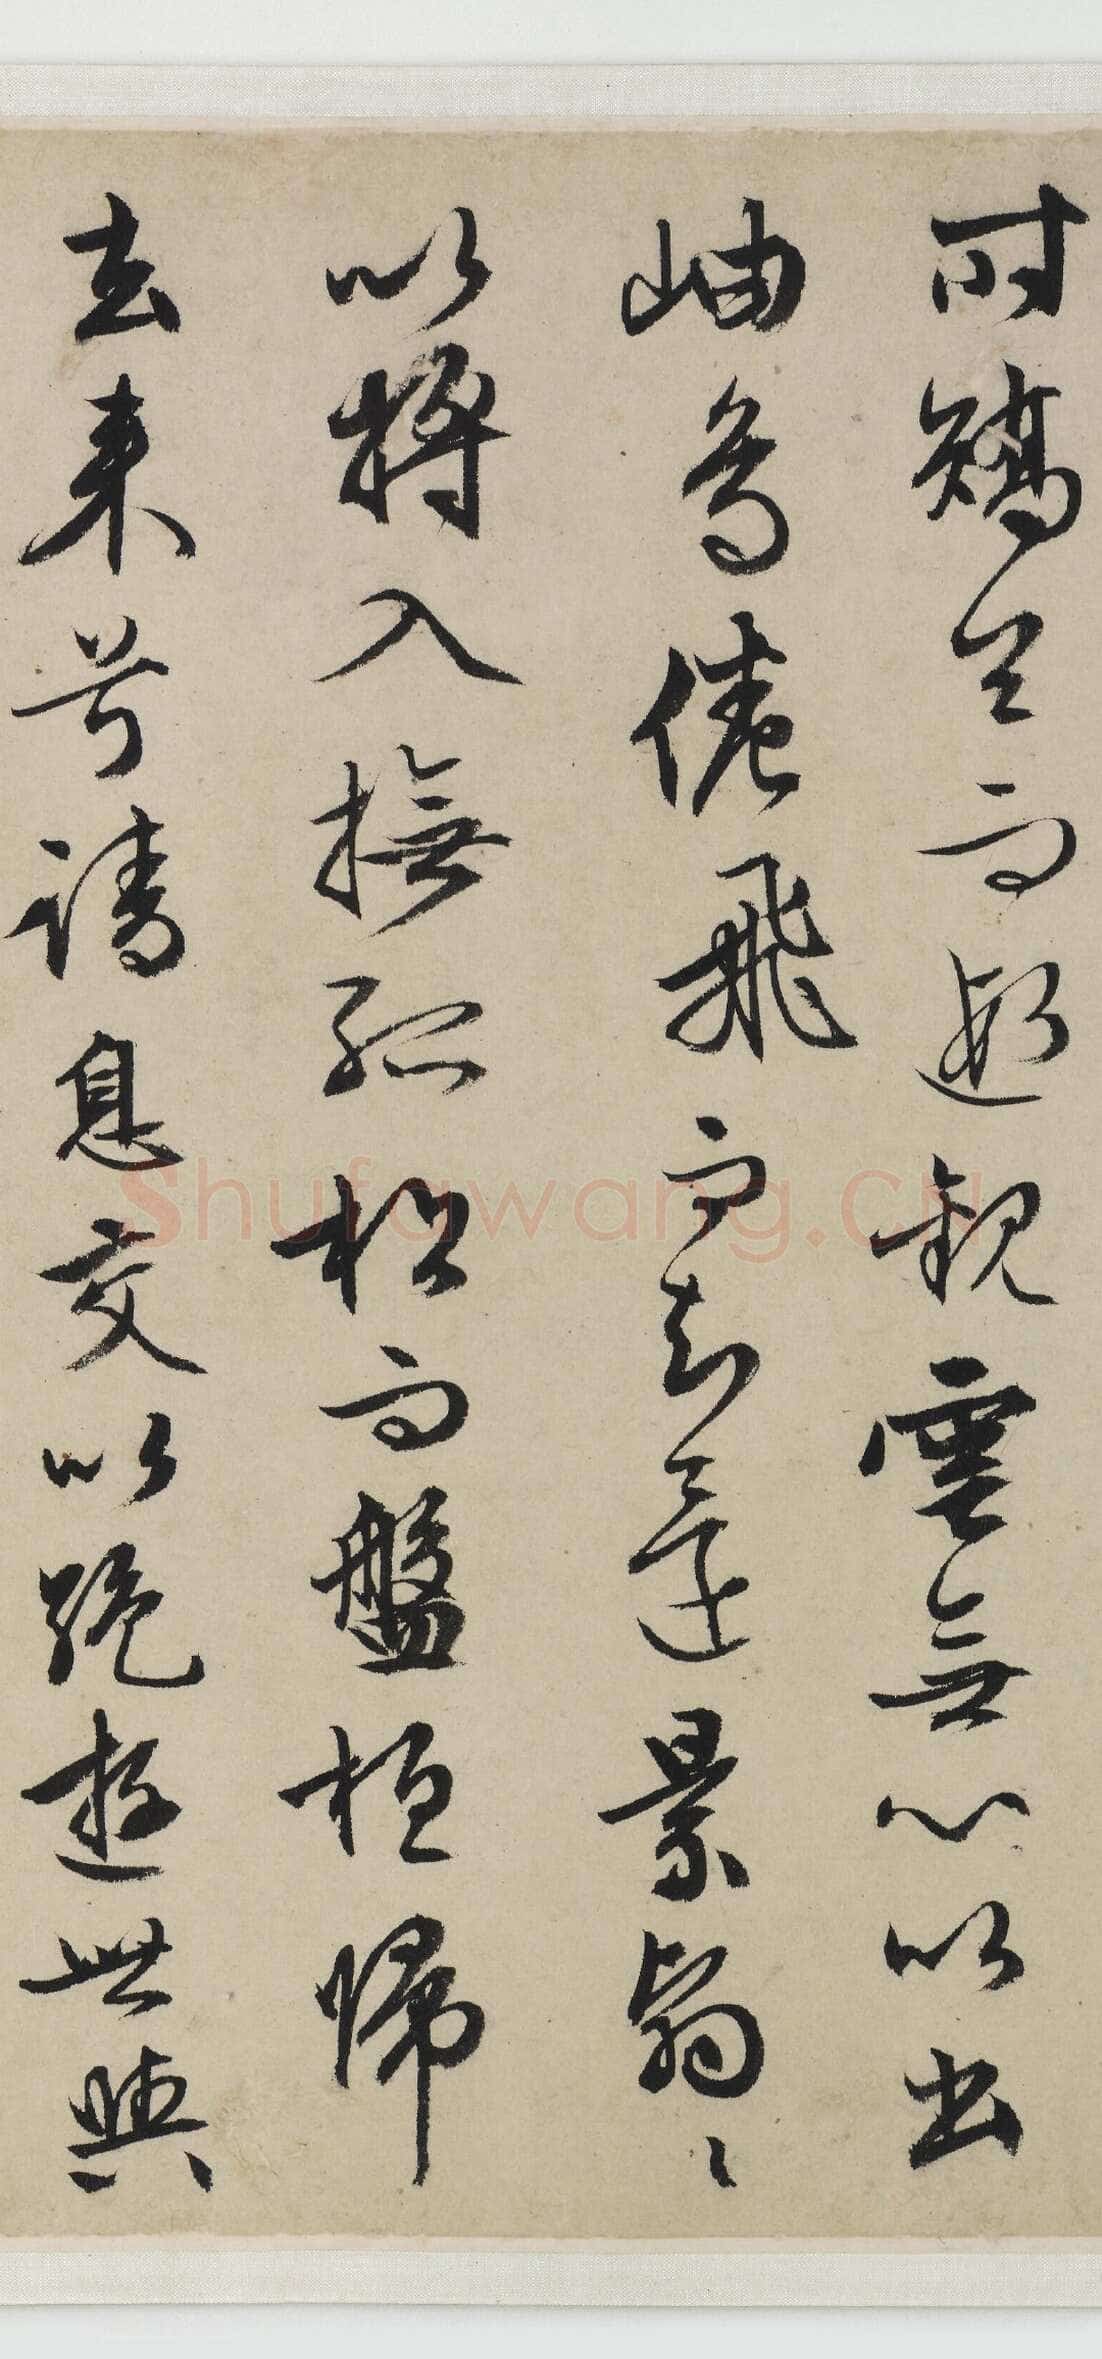 时矯首而遐觀雲無心以出
岫鳥倦飛而知還景翳〻
以將入撫孤松而盤桓歸
去來兮請息交以絶遊世與
Shufawang.CN